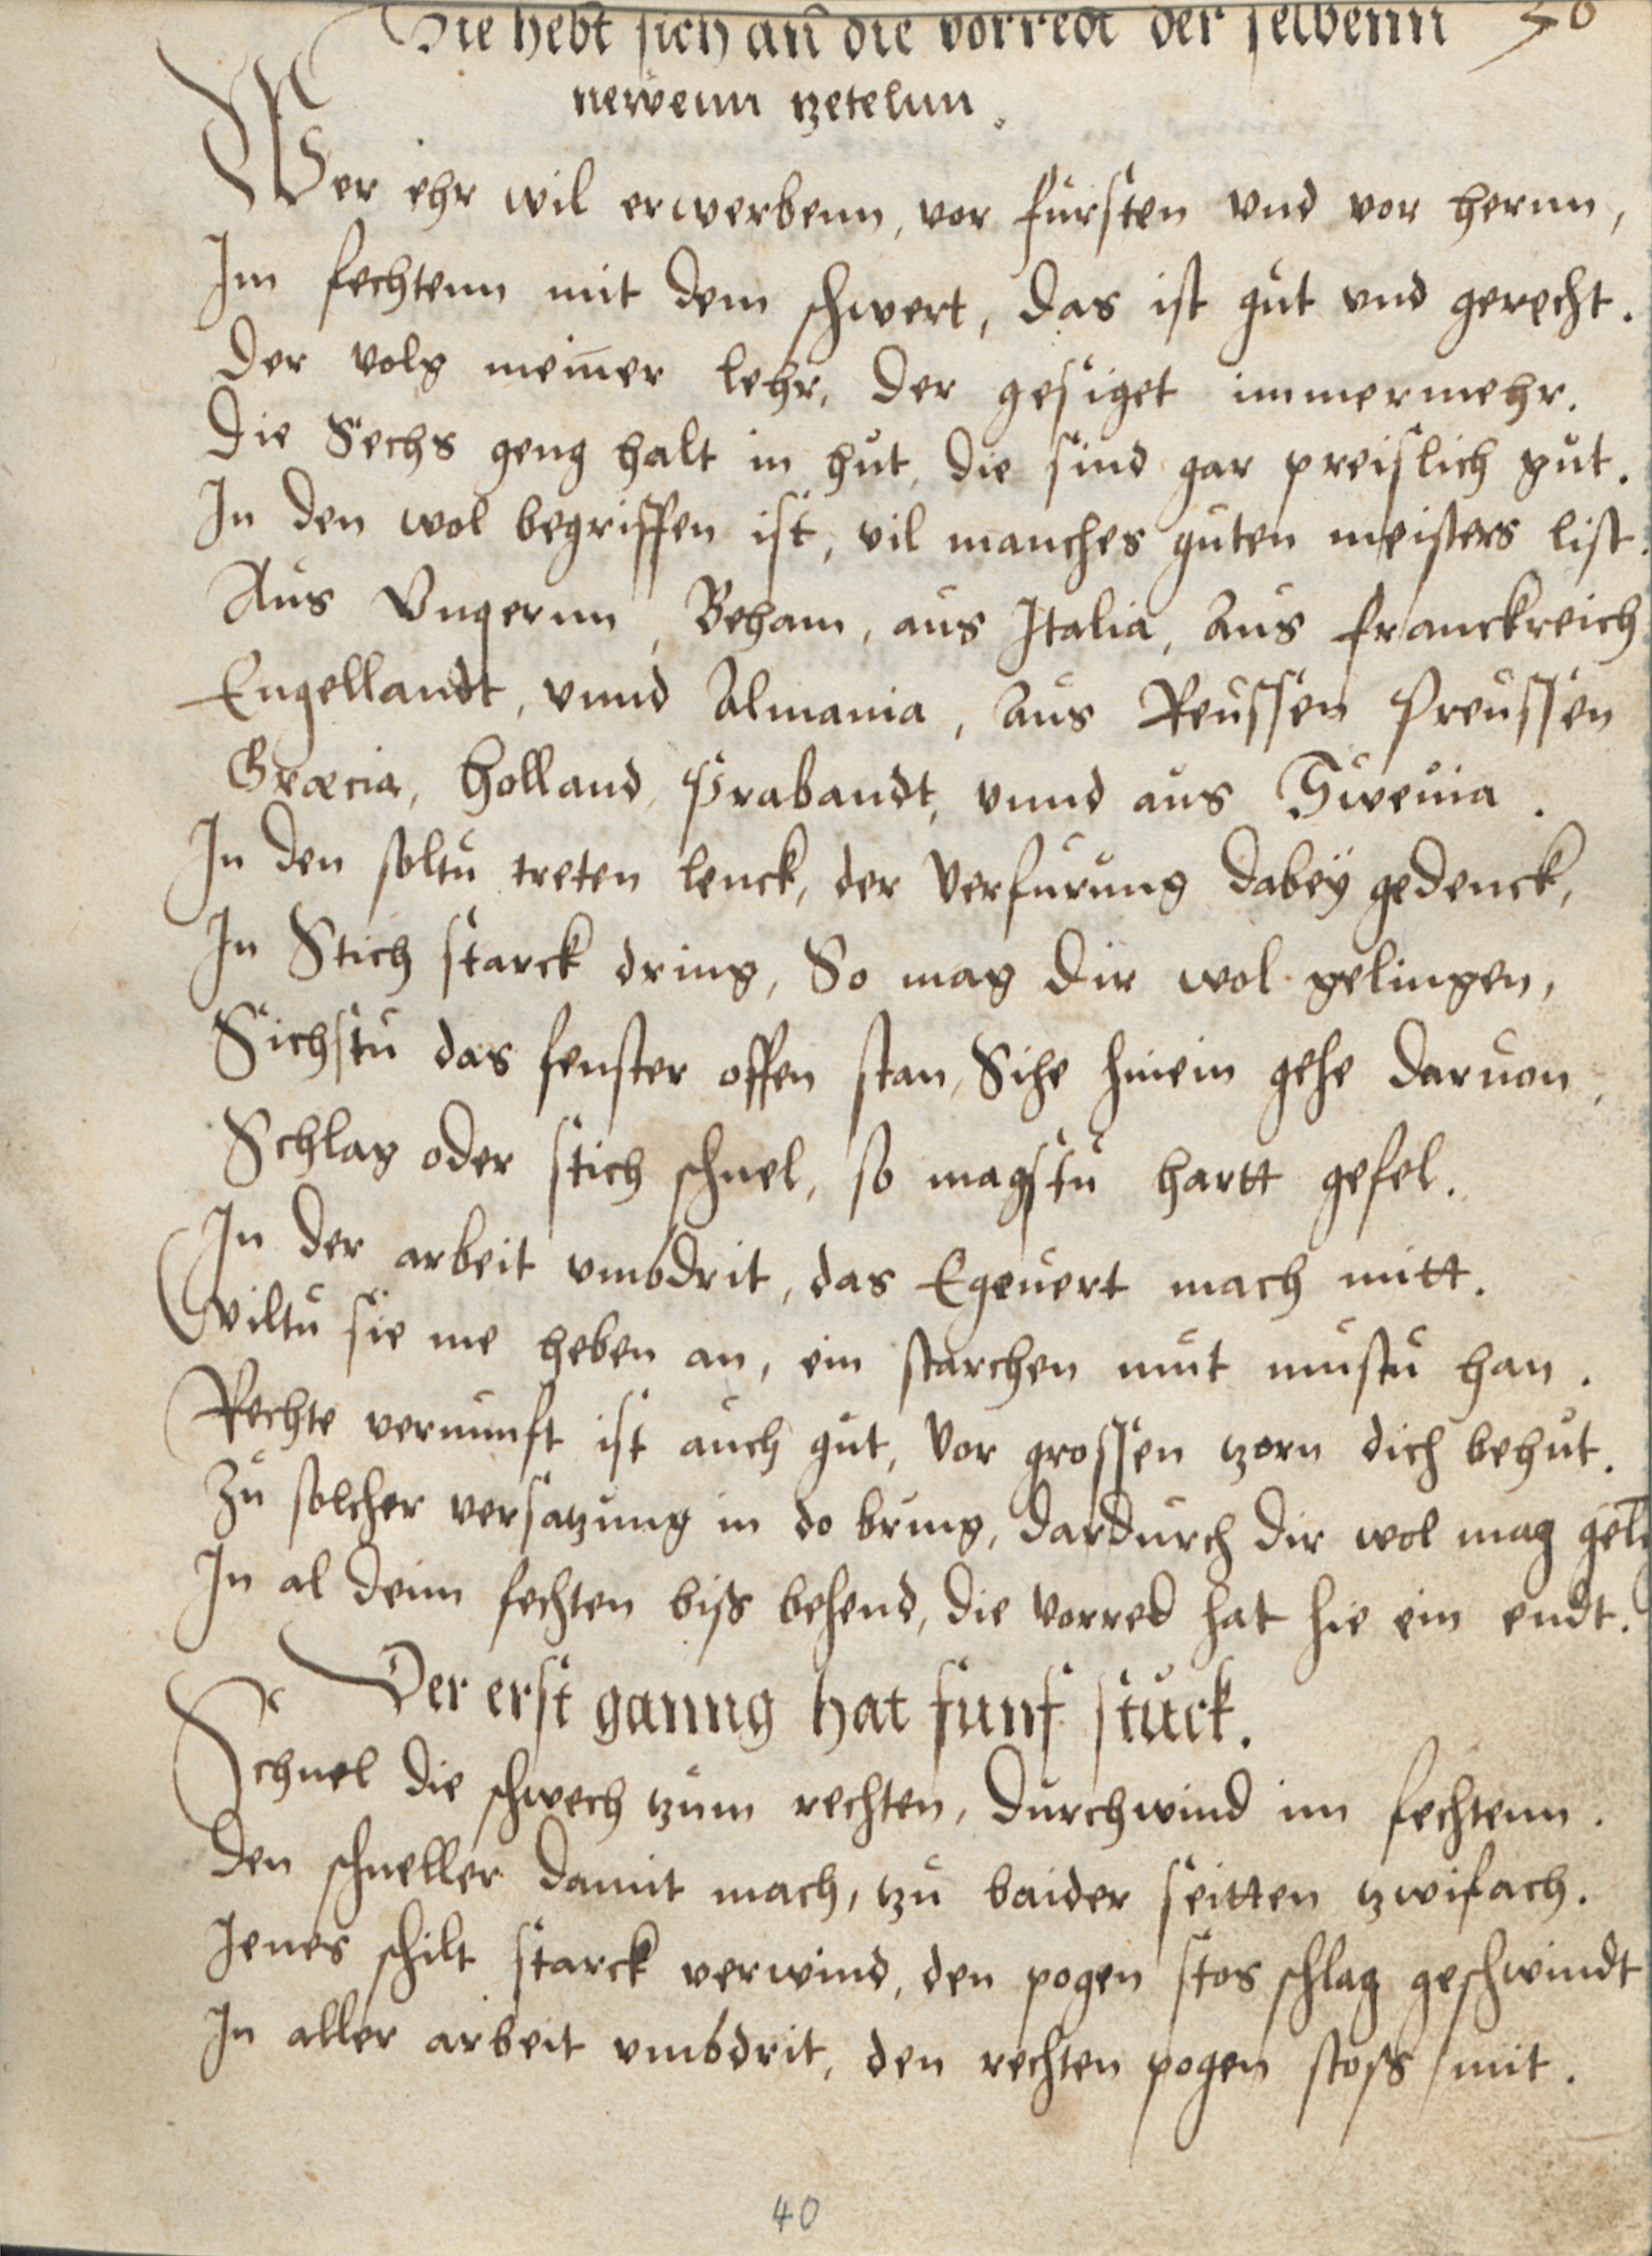 Hie hebt sich an̄ die vorredt der selbenn
newenn tzetelnn.
Wer ehr wil erwerbenn, vor fursten vnd vor hernn,
Im fechtenn mit dem schwert, das ist gut vnd gerecht.
Der volg meiner lehr, der gesiget immermehr.
Die Sechs geng halt in hut, die sind gar preislich gut.
In den wol begriffen ist, vil manches guten meisters list.
Aus Vngernn, Beham, aus Italia, Aus franckreich
Engellandt, vnnd Almania, Aus Reussen Preussen
Græcia, Holland, Prabandt, vnnd aus Sweuia.
In den soltu treten lenck, der Verfurung dabeÿ gedenck,
In Stich starck dring, So mag dir wol gelingen,
Sichstu das fenster offen stan, Sihe hinein gehe daruon,
Schlag oder stich schnel, so magstu hartt gefel.
In der arbeit vmbdrit, das Egeuert mach mitt.
Wiltu sie me heben an, ein starchen mut mustu han.
Rechte vernunft ist auch gut, Vor grossen tzorn dich behut.
Zu solcher versatzung in do bring, dardurch dir wol mag gel
In al deim fechten biss behend, die vorred hat hie ein endt.
Der erst ganng hat funf stuck.
Schnel die schwech tzum rechten, durchwind im fechtenn.
Den schneller damit mach, tzu baider seitten tzwifach.
Jenes schilt starck verwind, den pogen stos schlag geschwindt
In aller arbeit vmbdrit, den rechten pogen stoss mit.
40